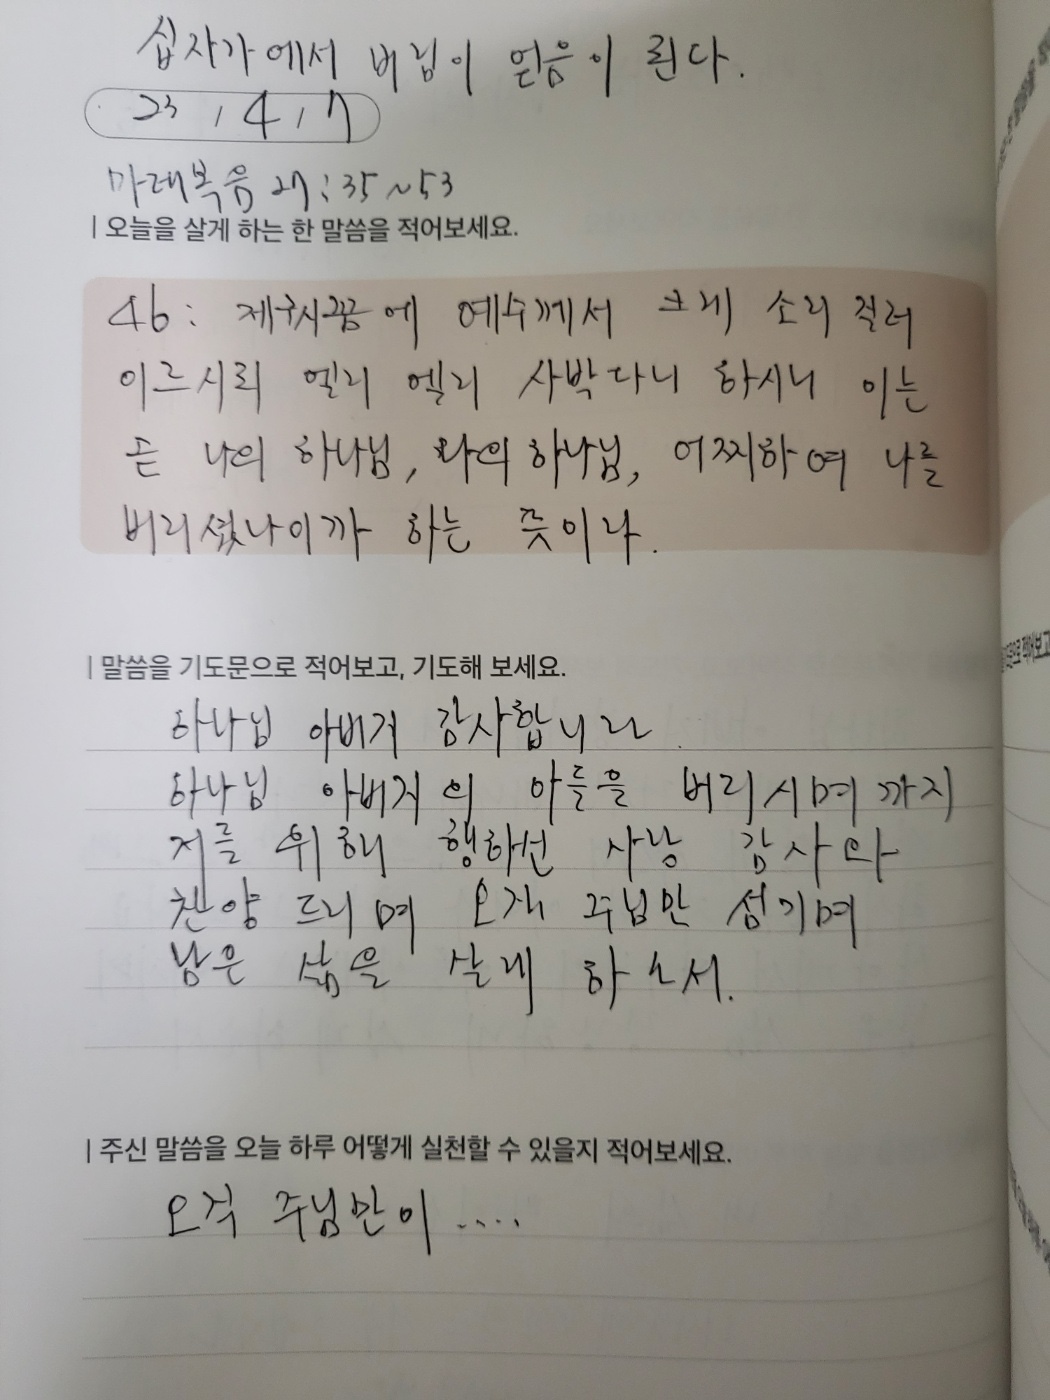 십자가에서 버림이 얻음이 된다.
23 / 4 / 7
마태복음 27:35~53
| 오늘을 살게 하는 한 말씀을 적어보세요.
46: 제구시쯤에 예수께서 크게 소리 질러
이르시되 엘리 엘리 사박다니 하시니 이는
곧 나의 하나님, 나의 하나님, 어찌하여 나를
버리셨나이까 하는 뜻이라.
| 말씀을 기도문으로 적어보고, 기도해 보세요.
하나님 아버지 감사합니다
하나님 아버지의 아들을 버리시며 까지
저를 위해 행하신 사랑 감사와
찬양 드리며 오직 주님만 섬기며
남은 삶을 살게 하소서.
| 주신 말씀을 오늘 하루 어떻게 실천할 수 있을지 적어보세요.
오직 주님만이 .....